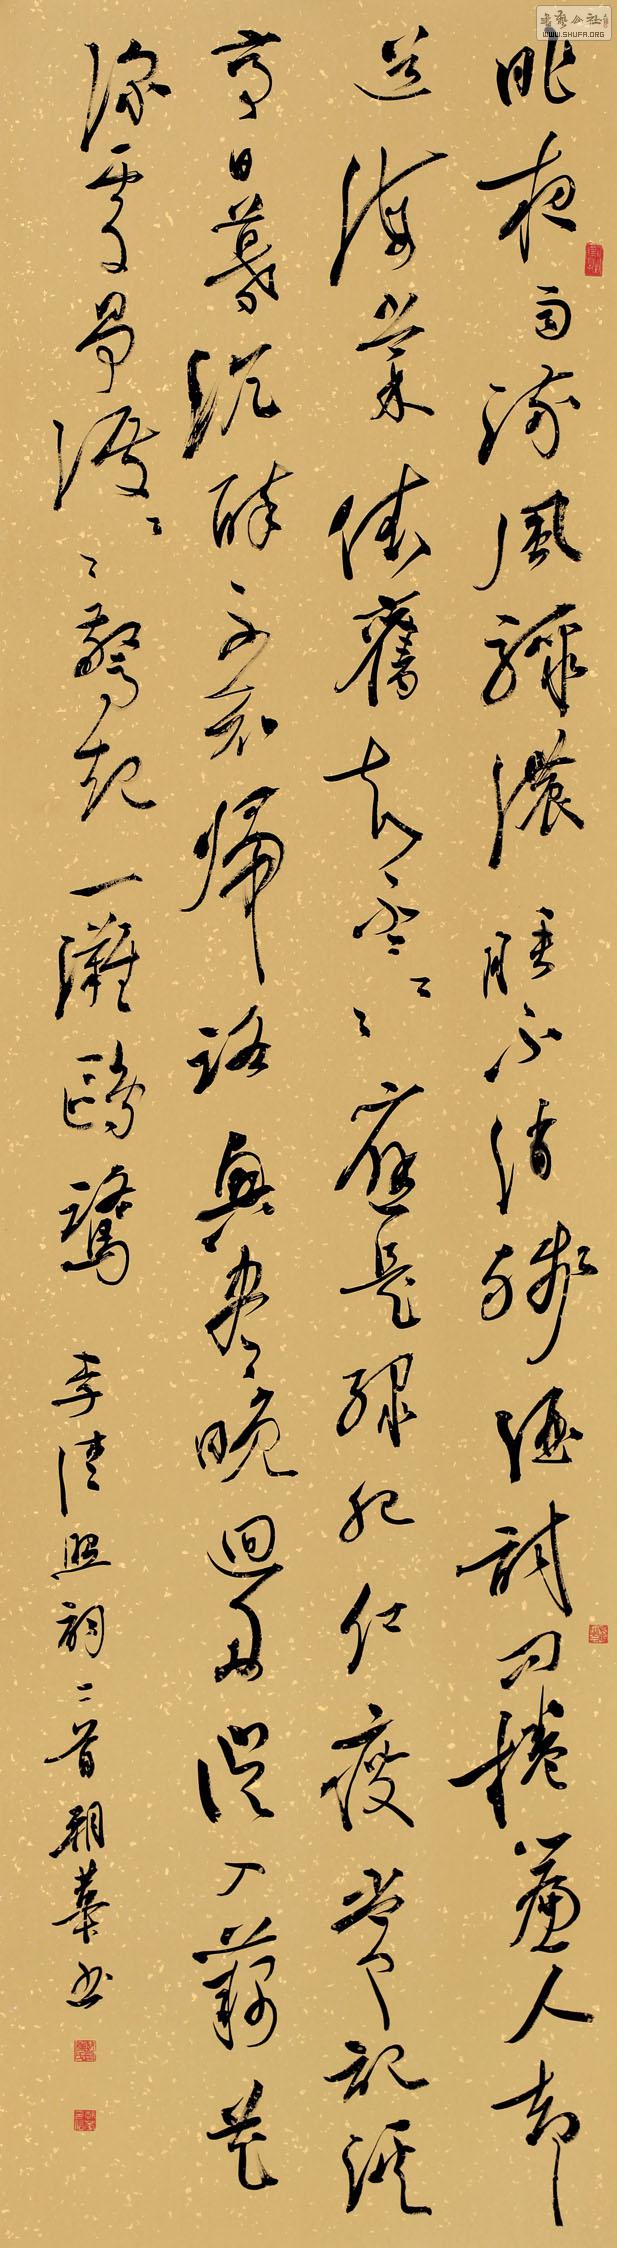 書藝公社
WWW.SHUFA.ORG
昨夜雨疏風驟濃睡不消殘酒試問捲簾人却
道海棠依舊知否〻〻應是綠肥紅瘦常記溪
亭日暮沉醉不知歸路興盡晚迴舟誤入藕花
深處爭渡〻〻驚起一灘鷗鷺 李清照詞二首 華書